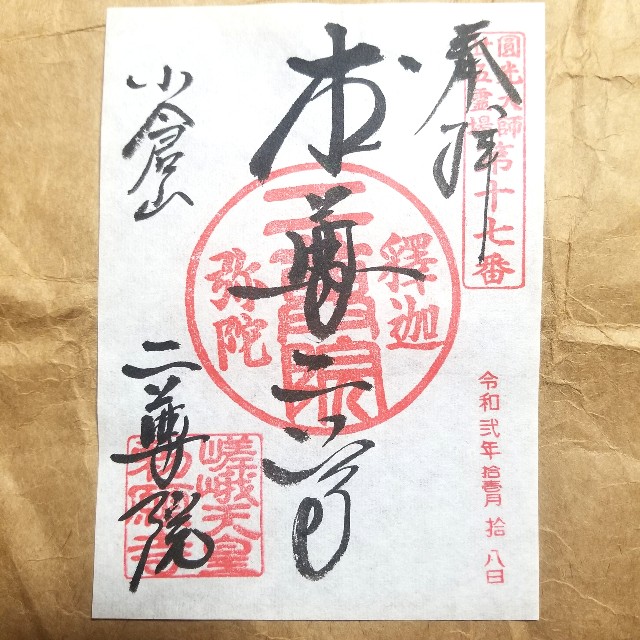 圓光大師
廿五霊場
第十七番
奉拝
令和弐年 拾壹月 拾八日
本尊二尊
釋迦
二尊院
弥陀
小倉山
二尊院
嵯峨天皇